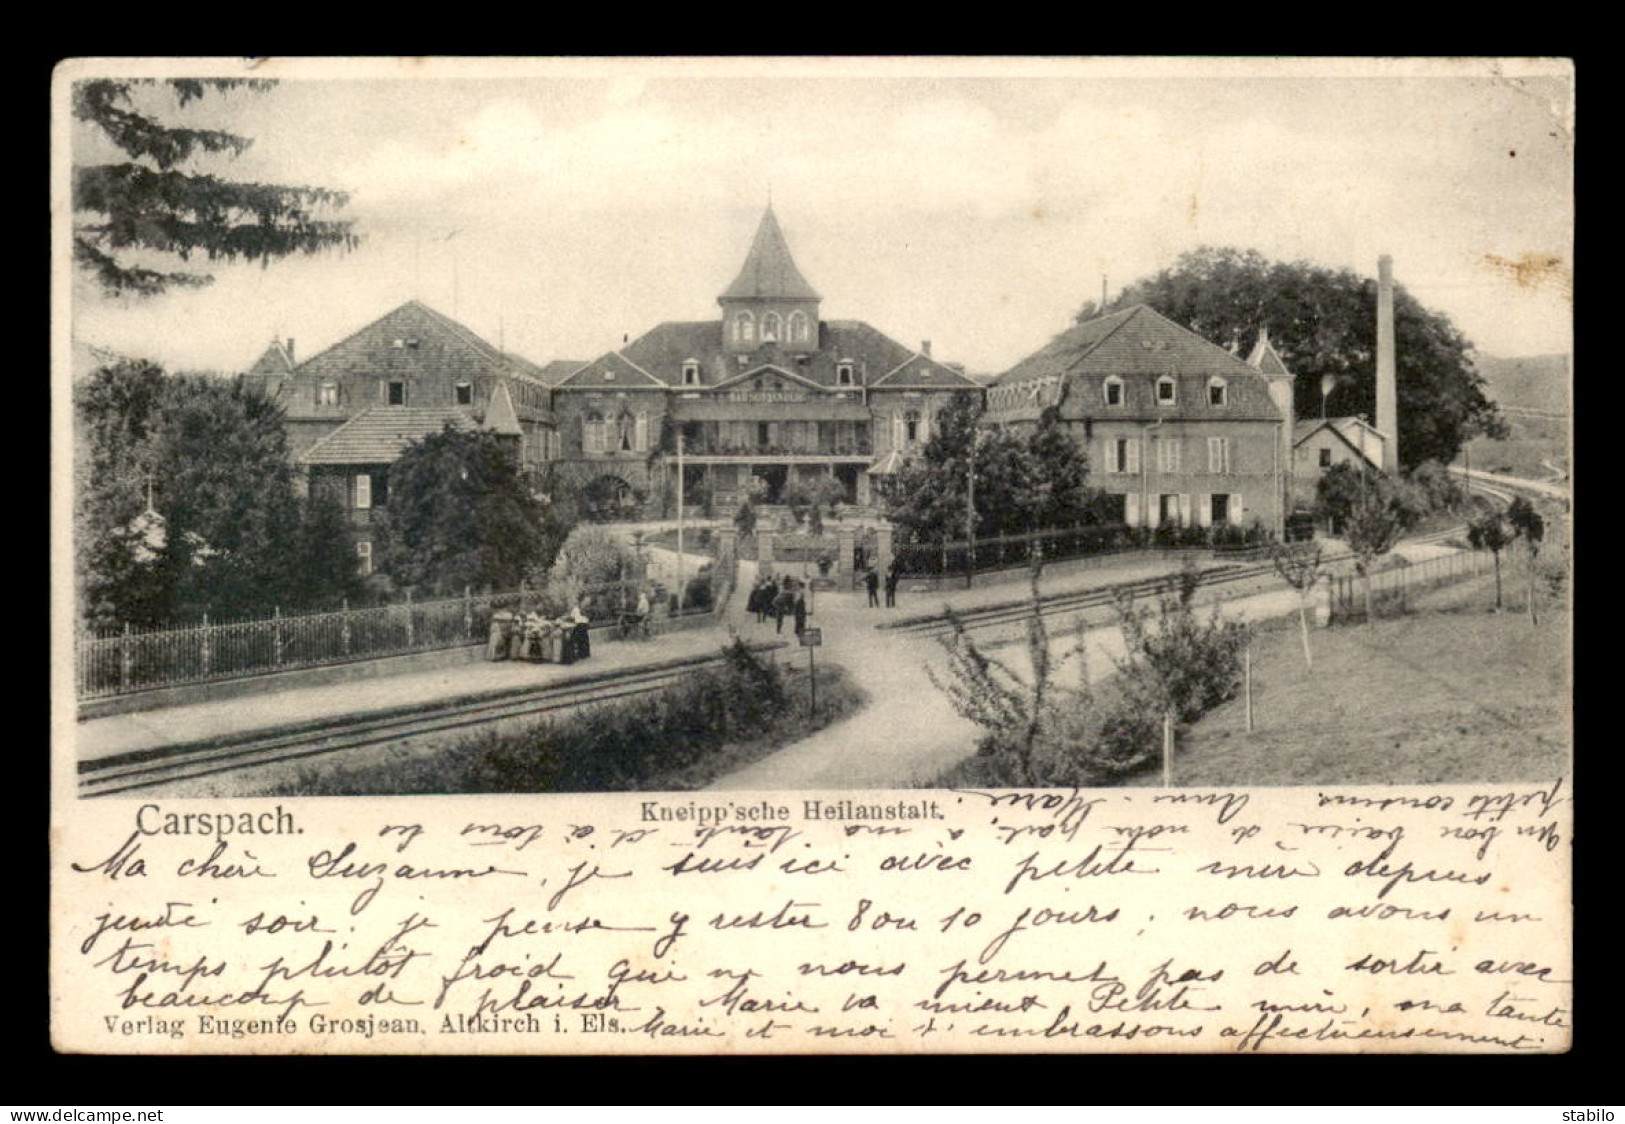 Carspach.
Kneipp'sche Heilanstalt.
Ma chère Suzanne, je suis ici avec petite mère depuis
jeudi soir. je pense y rester 8 ou 10 jours. nous avons un
temps plutôt froid qui ne nous permet pas de sortir avec
beaucoup de plaisir. Marie va mieux Petite mère, ma tante
Marie et moi t'embrassons affectueusement.
Un bon baiser de notre part, à ma tante et à tous les
petits cousins. Anna-Marie.
Verlag Eugenie Grosjean, Altkirch i. Els.
delcampe.net
stabilo